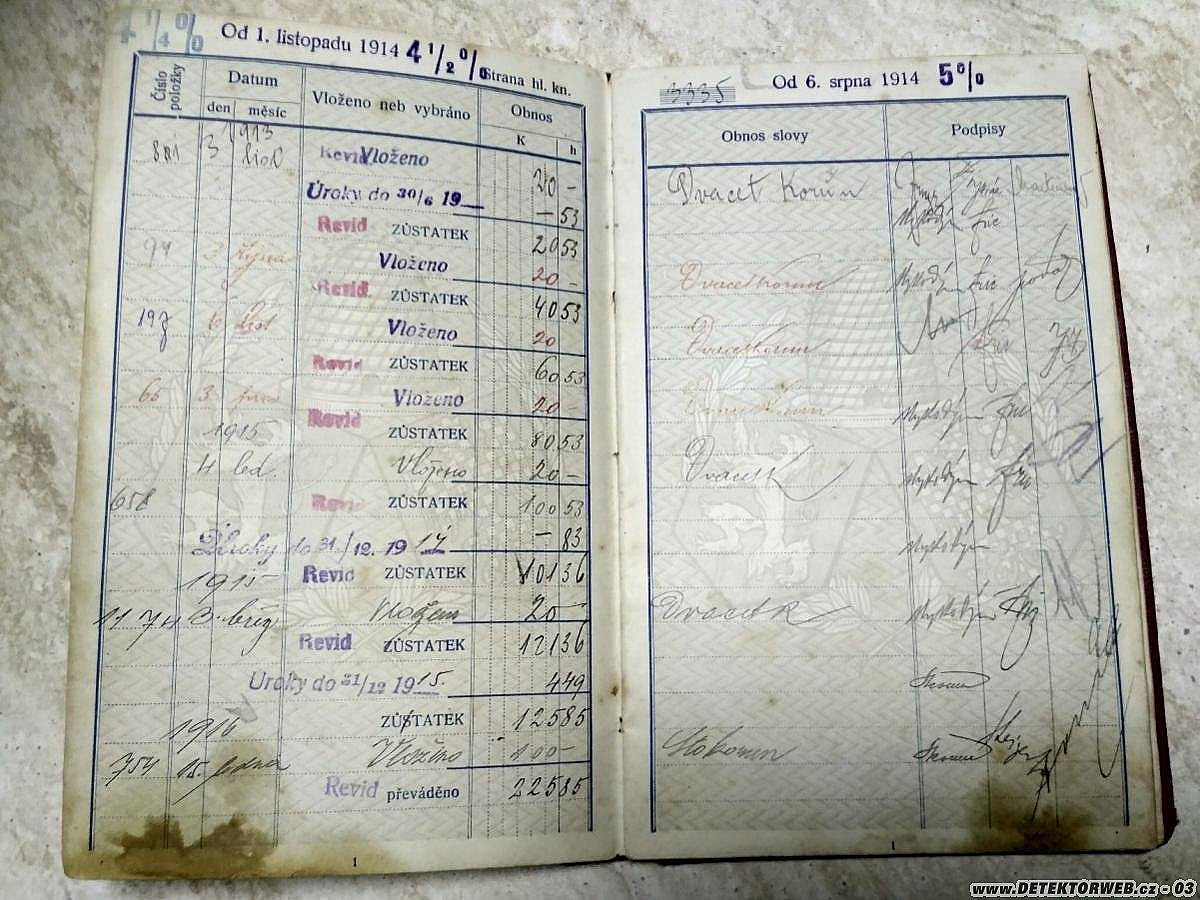 4¼%
Od 1. listopadu 1914 4½%
Strana hl. kn.
Číslo položky
Datum
den
měsíc
Vloženo neb vybráno
Obnos
K
h
1913
3 list
Revid Vloženo
20 –
Úroky do 30/6 19
– 53
Revid ZŮSTATEK
20 53
3 října
Vloženo
20 –
Revid ZŮSTATEK
40 53
197 6 list
Vloženo
20
Revid ZŮSTATEK
60 53
66 3
Vloženo
20 –
Revid ZŮSTATEK
80 53
1915
4 led.
Vloženo
20 –
658
Revid ZŮSTATEK
100 53
Úroky do 31/12. 19 14
– 83
1915
Revid ZŮSTATEK
101 36
1174 3. břez
Vloženo
20 –
Revid ZŮSTATEK
121 36
Úroky do 31/12 1915.
4 49
ZŮSTATEK
125 85
1916
754 15. ledna
Vloženo
100 –
Revid převáděno
225 85
1
3335
Od 6. srpna 1914 5%
Obnos slovy
Podpisy
Dvacet Korun
Dvacet korun
Dvacet korun
Dvacet korun
Dvacet K
Dvacet K
Sto korun
1
www.DETEKTORWEB.cz - 03